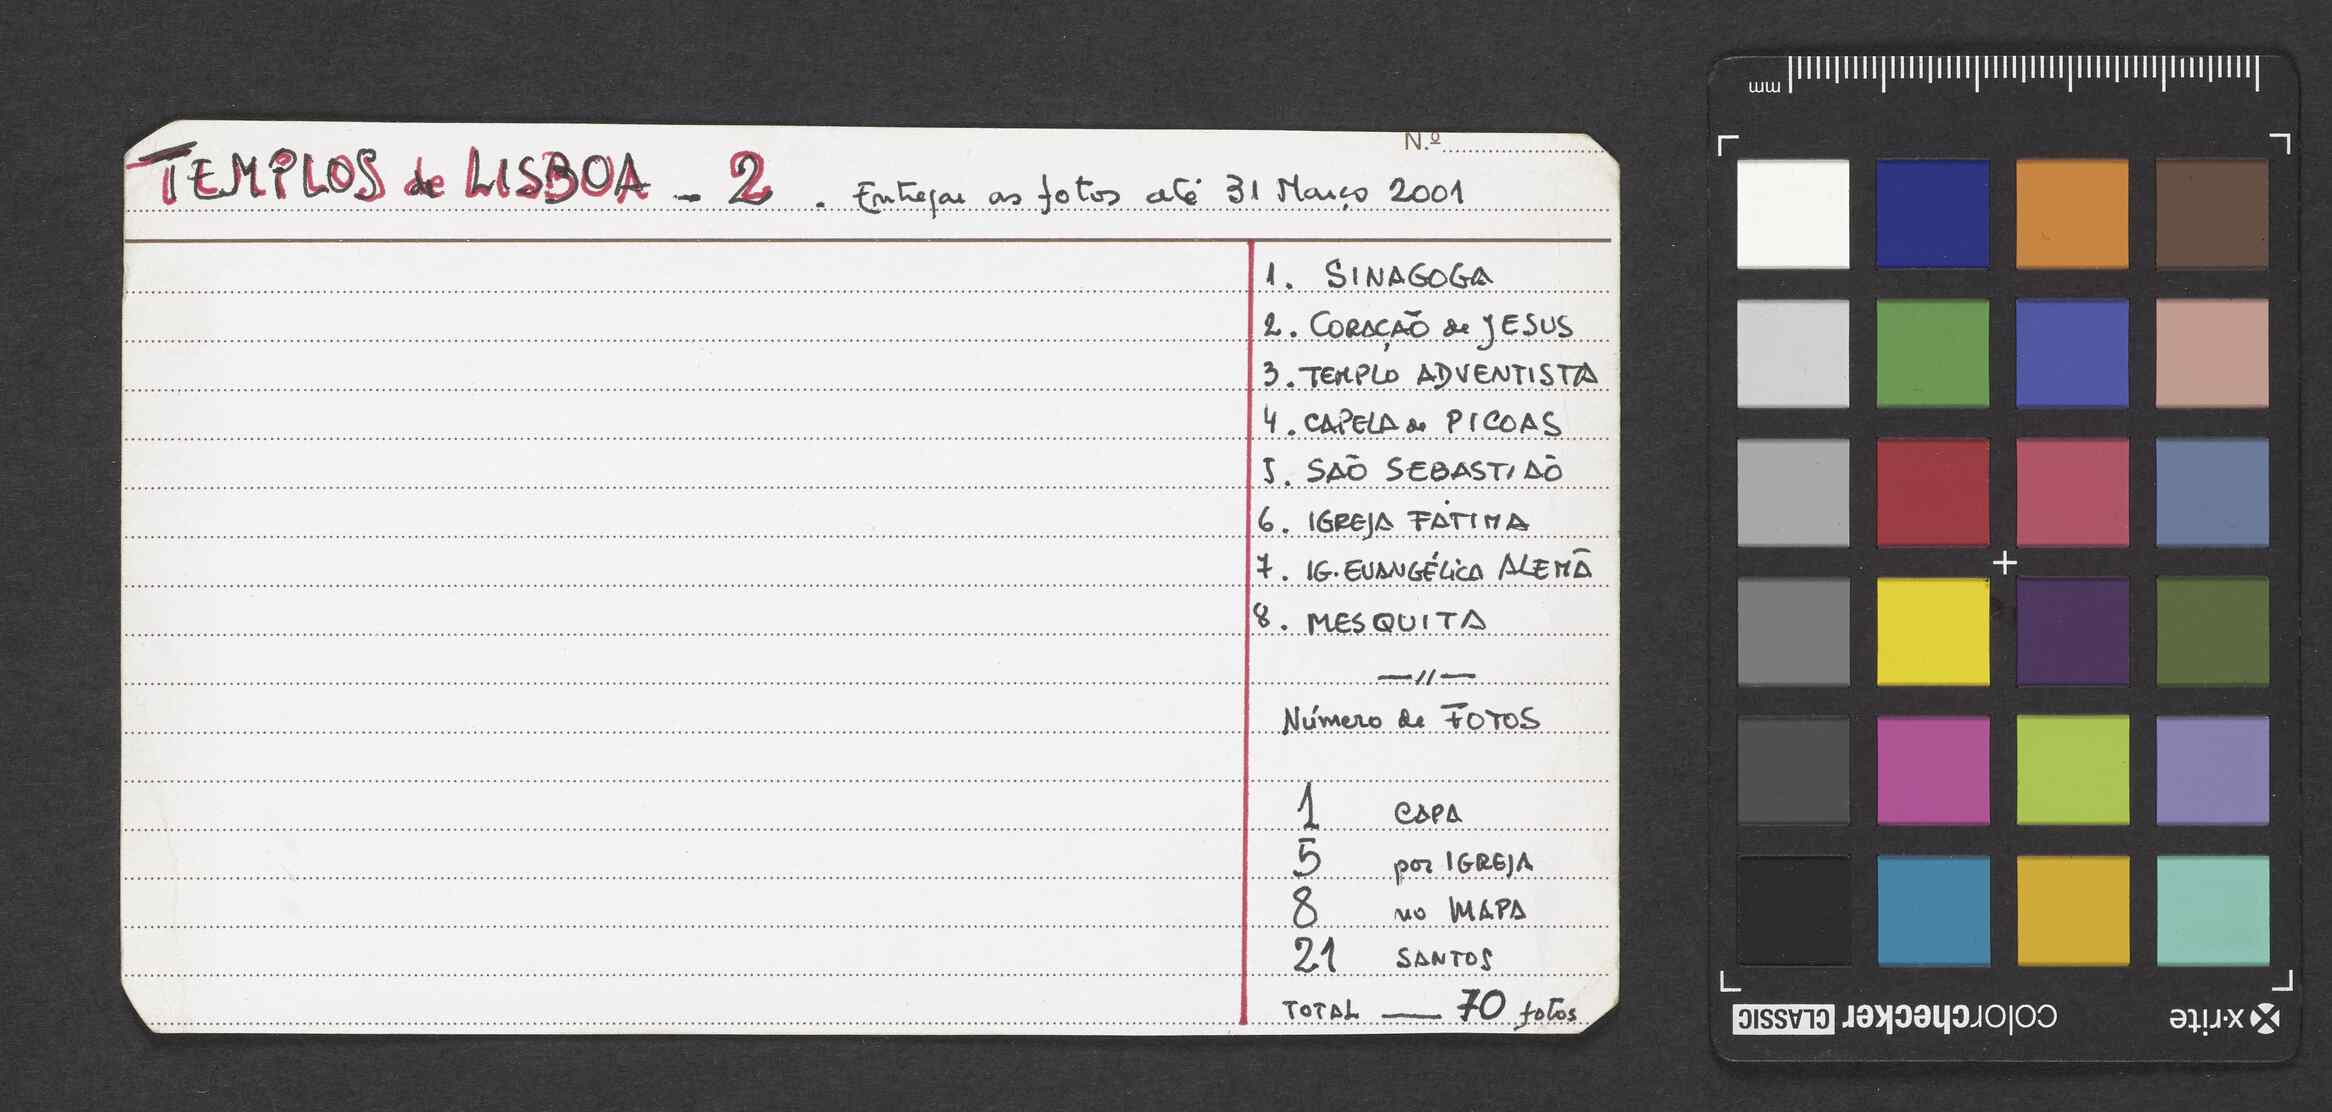 N.º
TEMPLOS de LISBOA - 2 . Entregar as fotos até 31 Março 2001
1. SINAGOGA
2. CORAÇÃO de JESUS
3. TEMPLO ADVENTISTA
4. CAPELA de PICOAS
5. SAÕ SEBASTIAÕ
6. IGREJA FÁTIMA
7. IG. EVANGÉLICA ALEMÃ
8. MESQUITA
—//—
Número de FOTOS
1 CAPA
5 por IGREJA
8 no MAPA
21 SANTOS
TOTAL — 70 fotos
mm
colorchecker CLASSIC
x·rite